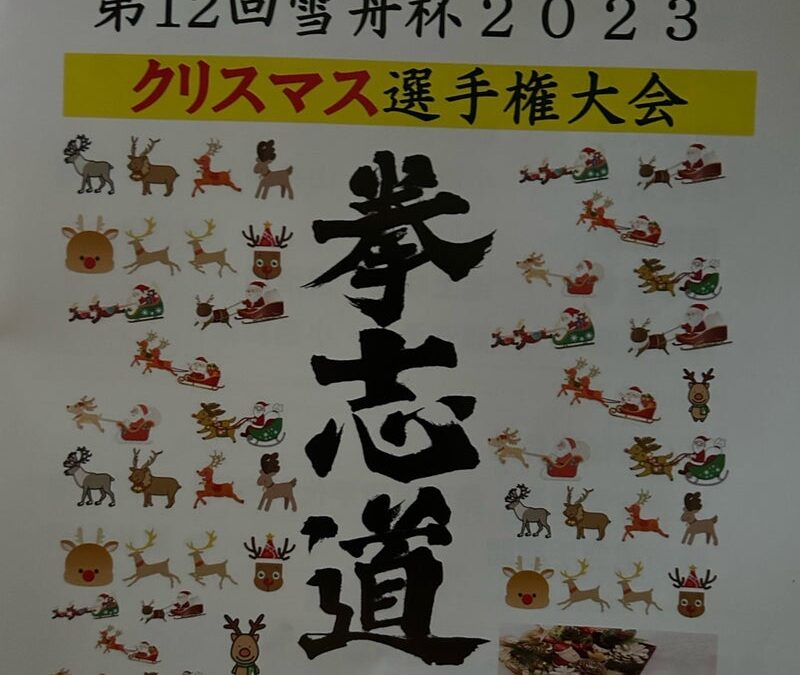 第12回雪舟杯２０２３
クリスマス選手権大会
拳志道